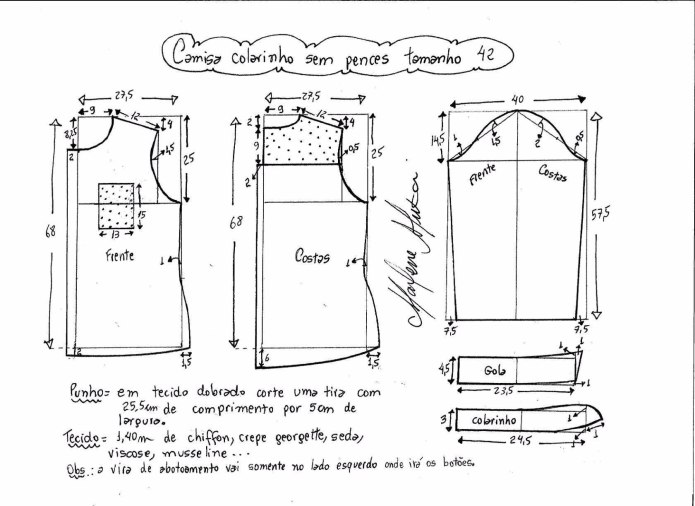 Camisa colarinho sem pences tamanho 42
27,5
9
12
4
8,25
2
1,5
25
68
15
13
Frente
1
2
1,5
27,5
9
12
4
2
9
0,5
2
25
68
Costas
1
6
1,5
40
14,5
1
1,5
2
Frente
Costas
57,5
7,5
7,5
4,5
Gola
1
1
23,5
3
colarinho
1
1
24,5
Punho = em tecido dobrado corte uma tira com
25,5cm de comprimento por 5cm de
largura.
Tecido = 1,40m de chiffon, crepe georgette, seda,
viscose, musseline ...
Obs.: a vira de abotoamento vai somente no lado esquerdo onde irá os botões.